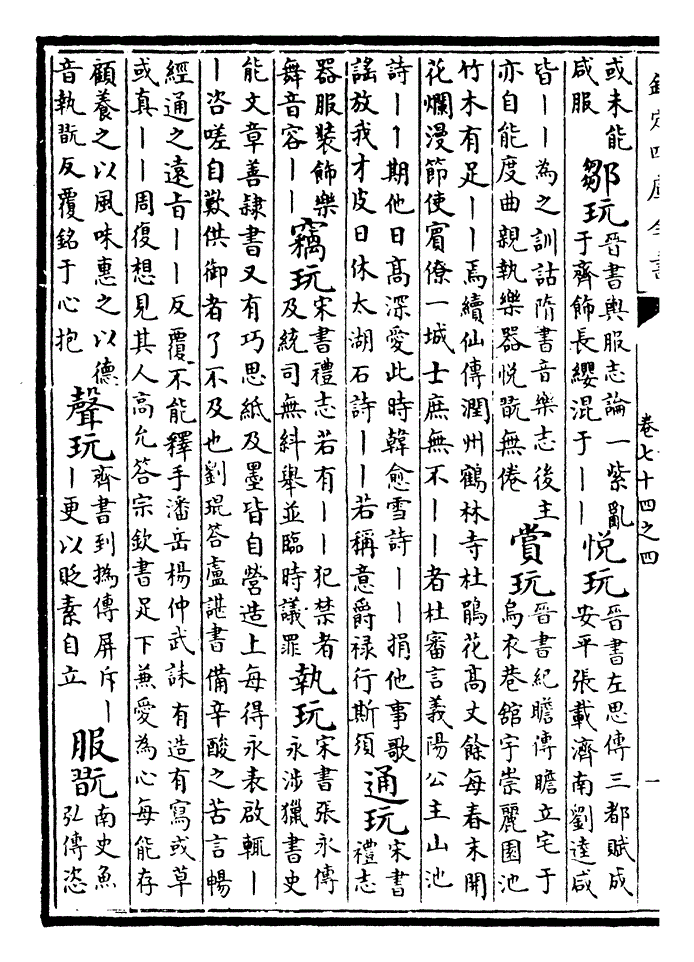 欽定四庫全書
卷七十四之四
或未能
咸服
鄒玩
晉書輿服志論一紫亂
于齊飾長纓混于｜｜
悅玩
晉書左思傳三都賦成
安平張載濟南劉逵咸
皆｜｜為之訓詁隋書音樂志後主
亦自能度曲親執樂器悅翫無倦
賞玩
晉書紀瞻傳瞻立宅于
烏衣巷舘宇崇麗園池
竹木有足｜｜焉續仙傳潤州鶴林寺杜鵑花高丈餘每春末開
花爛漫節使賓僚一城士庶無不｜｜者杜審言義陽公主山池
詩｜｜期他日高深愛此時韓愈雪詩｜｜捐他事歌
謠放我才皮日休太湖石詩｜｜若稱意爵禄行斯須
通玩
宋書
禮志
器服裝飾樂
舞音容｜｜
竊玩
宋書禮志若有｜｜犯禁者
及統司無糾舉並臨時議罪
執玩
宋書張永傳
永涉獵書史
能文章善隷書又有巧思紙及墨皆自營造上每得永表啟輒｜
｜咨嗟自歎供御者了不及也劉琨答盧諶書備辛酸之苦言暢
經通之遠旨｜｜反覆不能釋手潘岳楊仲武誄有造有寫或草
或真｜｜周復想見其人高允答宗欽書足下兼愛為心每能存
顧養之以風味惠之以德
音執翫反覆銘于心抱
聲玩
齊書到撝傳屏斥｜
｜更以貶素自立
服翫
南史魚
弘傳恣